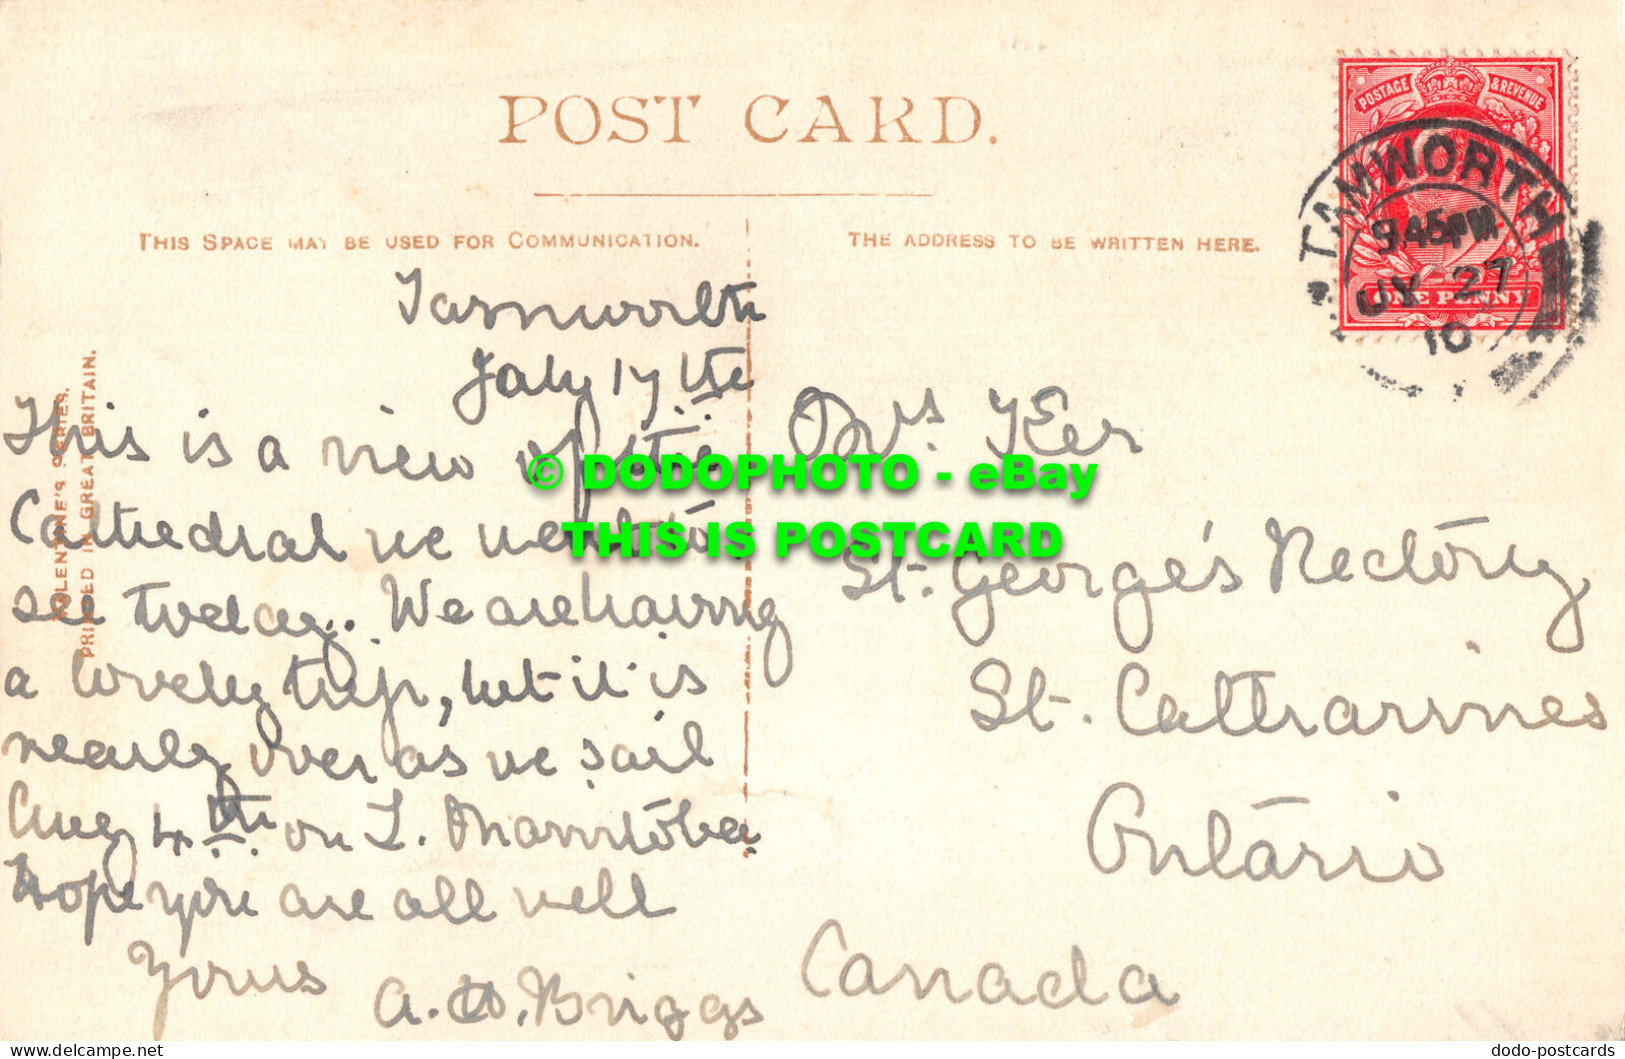 POST CARD.
THIS SPACE MAY BE USED FOR COMMUNICATION.
THE ADDRESS TO BE WRITTEN HERE.
POSTAGE & REVENUE
ONE PENNY
TAMWORTH
9.45 PM
JY 27
10
VALENTINE'S SERIES.
PRINTED IN GREAT BRITAIN.
Tamworth
July 17th
This is a view of the
Cathedral we went to
see today. We are having
a lovely trip, but it is
nearly over as we sail
Aug 4th on L. Manitoba
Hope you are all well
Yours
Briggs
Mrs. Ker
St. George's Rectory
St. Catharines
Ontario
Canada
© DODOPHOTO - eBay
THIS IS POSTCARD
dodo-postcards
© DELCAMPE.NET